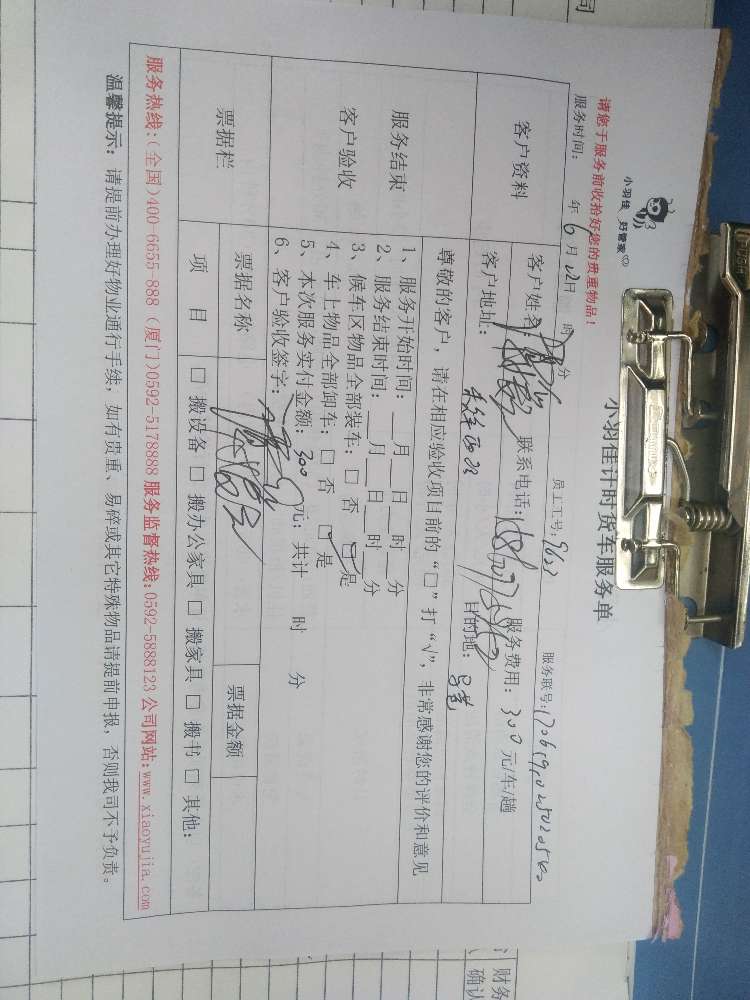 小羽佳 好管家
小羽佳计时货车服务单
请您于服务前收拾好您的贵重物品！
服务时间： 年 6 月 22 日 时 分 员工工号： 服务联号：
客户资料
客户姓名： 联系电话： 服务费用：300元/车/趟
客户地址： 目的地：
尊敬的客户，请在相应验收项目前的“□”打“√”，非常感谢您的评价和意见
服务结束
客户验收
1、服务开始时间：__月__日__时__分
2、服务结束时间：__月__日__时__分
3、候车区物品全部装车：□ 否 ☑ 是
4、车上物品全部卸车：□ 否 ☑ 是
5、本次服务实付金额：300元；共计 时 分
6、客户验收签字：
票据栏
票据名称 票据金额
项 目 □ 搬设备 □ 搬办公家具 □ 搬家具 □ 搬书 □ 其他：
服务热线：（全国）400-6655-888（厦门）0592-5178888 服务监督热线：0592-5888123 公司网站：www.xiaoyujia.com
温馨提示：请提前办理好物业通行手续，如有贵重、易碎或其它特殊物品请提前申报，否则我司不予负责。
司
财务
确认